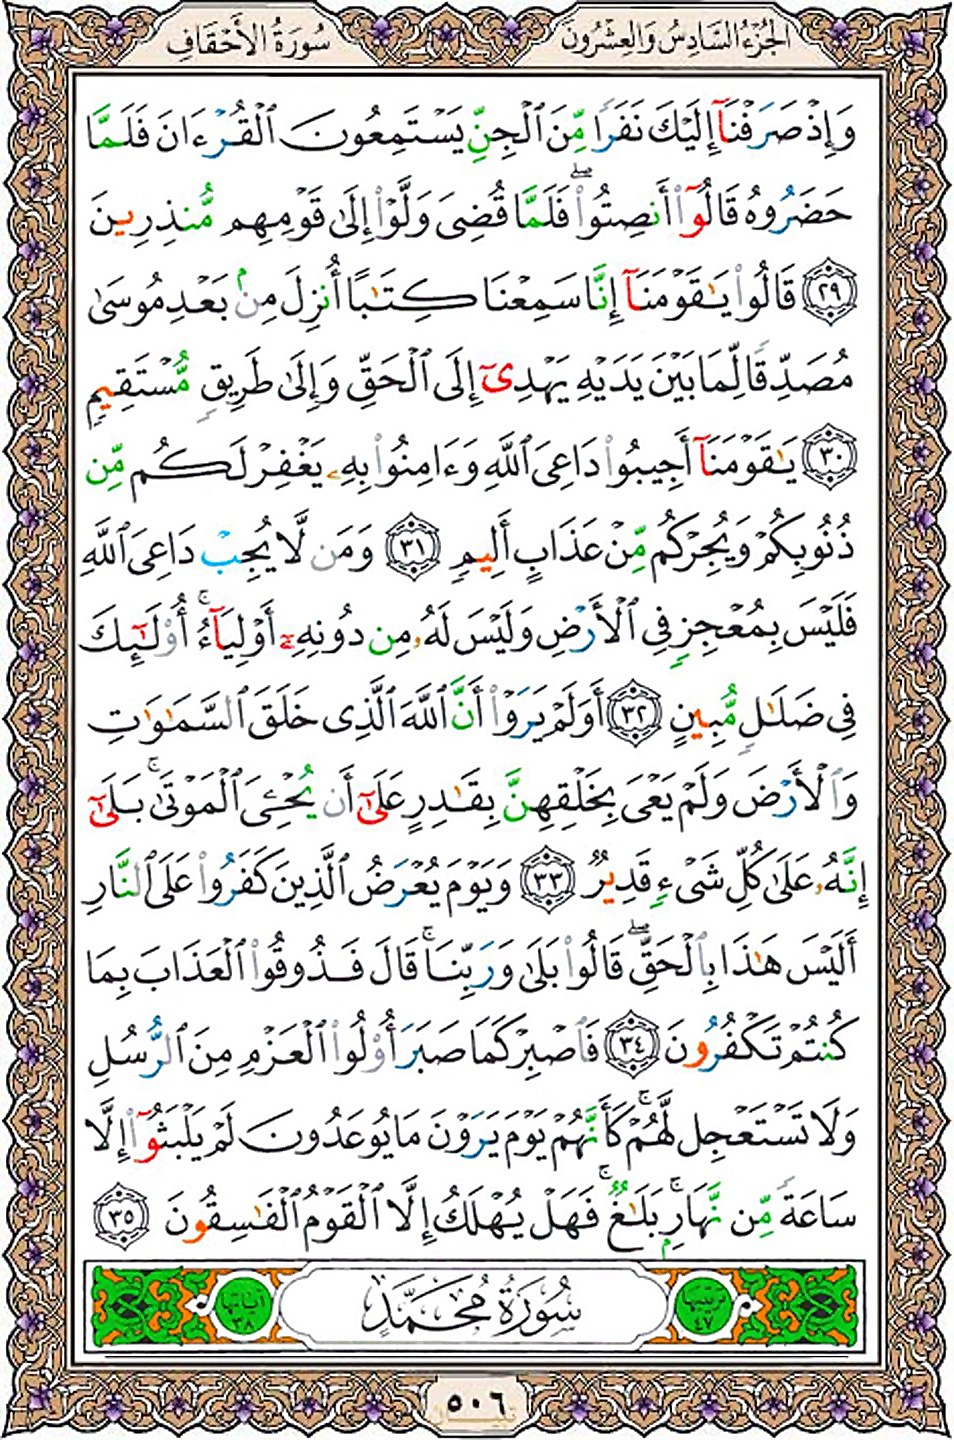 الجزء السادس والعشرون
سورة الأحقاف
وَإِذْ صَرَفْنَآ إِلَيْكَ نَفَرًا مِّنَ ٱلْجِنِّ يَسْتَمِعُونَ ٱلْقُرْءَانَ فَلَمَّا
حَضَرُوهُ قَالُوٓا۟ أَنصِتُوا۟ ۖ فَلَمَّا قُضِىَ وَلَّوْا۟ إِلَىٰ قَوْمِهِم مُّنذِرِينَ
﴿٢٩﴾ قَالُوا۟ يَـٰقَوْمَنَآ إِنَّا سَمِعْنَا كِتَـٰبًا أُنزِلَ مِنۢ بَعْدِ مُوسَىٰ
مُصَدِّقًا لِّمَا بَيْنَ يَدَيْهِ يَهْدِىٓ إِلَى ٱلْحَقِّ وَإِلَىٰ طَرِيقٍ مُّسْتَقِيمٍ
﴿٣٠﴾ يَـٰقَوْمَنَآ أَجِيبُوا۟ دَاعِىَ ٱللَّهِ وَءَامِنُوا۟ بِهِۦ يَغْفِرْ لَكُم مِّن
ذُنُوبِكُمْ وَيُجِرْكُم مِّنْ عَذَابٍ أَلِيمٍ ﴿٣١﴾ وَمَن لَّا يُجِبْ دَاعِىَ ٱللَّهِ
فَلَيْسَ بِمُعْجِزٍ فِى ٱلْأَرْضِ وَلَيْسَ لَهُۥ مِن دُونِهِۦٓ أَوْلِيَآءُ ۚ أُو۟لَـٰٓئِكَ
فِى ضَلَـٰلٍ مُّبِينٍ ﴿٣٢﴾ أَوَلَمْ يَرَوْا۟ أَنَّ ٱللَّهَ ٱلَّذِى خَلَقَ ٱلسَّمَـٰوَٰتِ
وَٱلْأَرْضَ وَلَمْ يَعْىَ بِخَلْقِهِنَّ بِقَـٰدِرٍ عَلَىٰٓ أَن يُحْـِۧىَ ٱلْمَوْتَىٰ ۚ بَلَىٰٓ
إِنَّهُۥ عَلَىٰ كُلِّ شَىْءٍ قَدِيرٌ ﴿٣٣﴾ وَيَوْمَ يُعْرَضُ ٱلَّذِينَ كَفَرُوا۟ عَلَى ٱلنَّارِ
أَلَيْسَ هَـٰذَا بِٱلْحَقِّ ۖ قَالُوا۟ بَلَىٰ وَرَبِّنَا ۚ قَالَ فَذُوقُوا۟ ٱلْعَذَابَ بِمَا
كُنتُمْ تَكْفُرُونَ ﴿٣٤﴾ فَٱصْبِرْ كَمَا صَبَرَ أُو۟لُوا۟ ٱلْعَزْمِ مِنَ ٱلرُّسُلِ
وَلَا تَسْتَعْجِل لَّهُمْ ۚ كَأَنَّهُمْ يَوْمَ يَرَوْنَ مَا يُوعَدُونَ لَمْ يَلْبَثُوٓا۟ إِلَّا
سَاعَةً مِّن نَّهَارٍۭ ۚ بَلَـٰغٌ ۚ فَهَلْ يُهْلَكُ إِلَّا ٱلْقَوْمُ ٱلْفَـٰسِقُونَ ﴿٣٥﴾
ترتيبها ٤٧
سُورَةُ مُحَمَّدٍ
آياتها ٣٨
٥٠٦